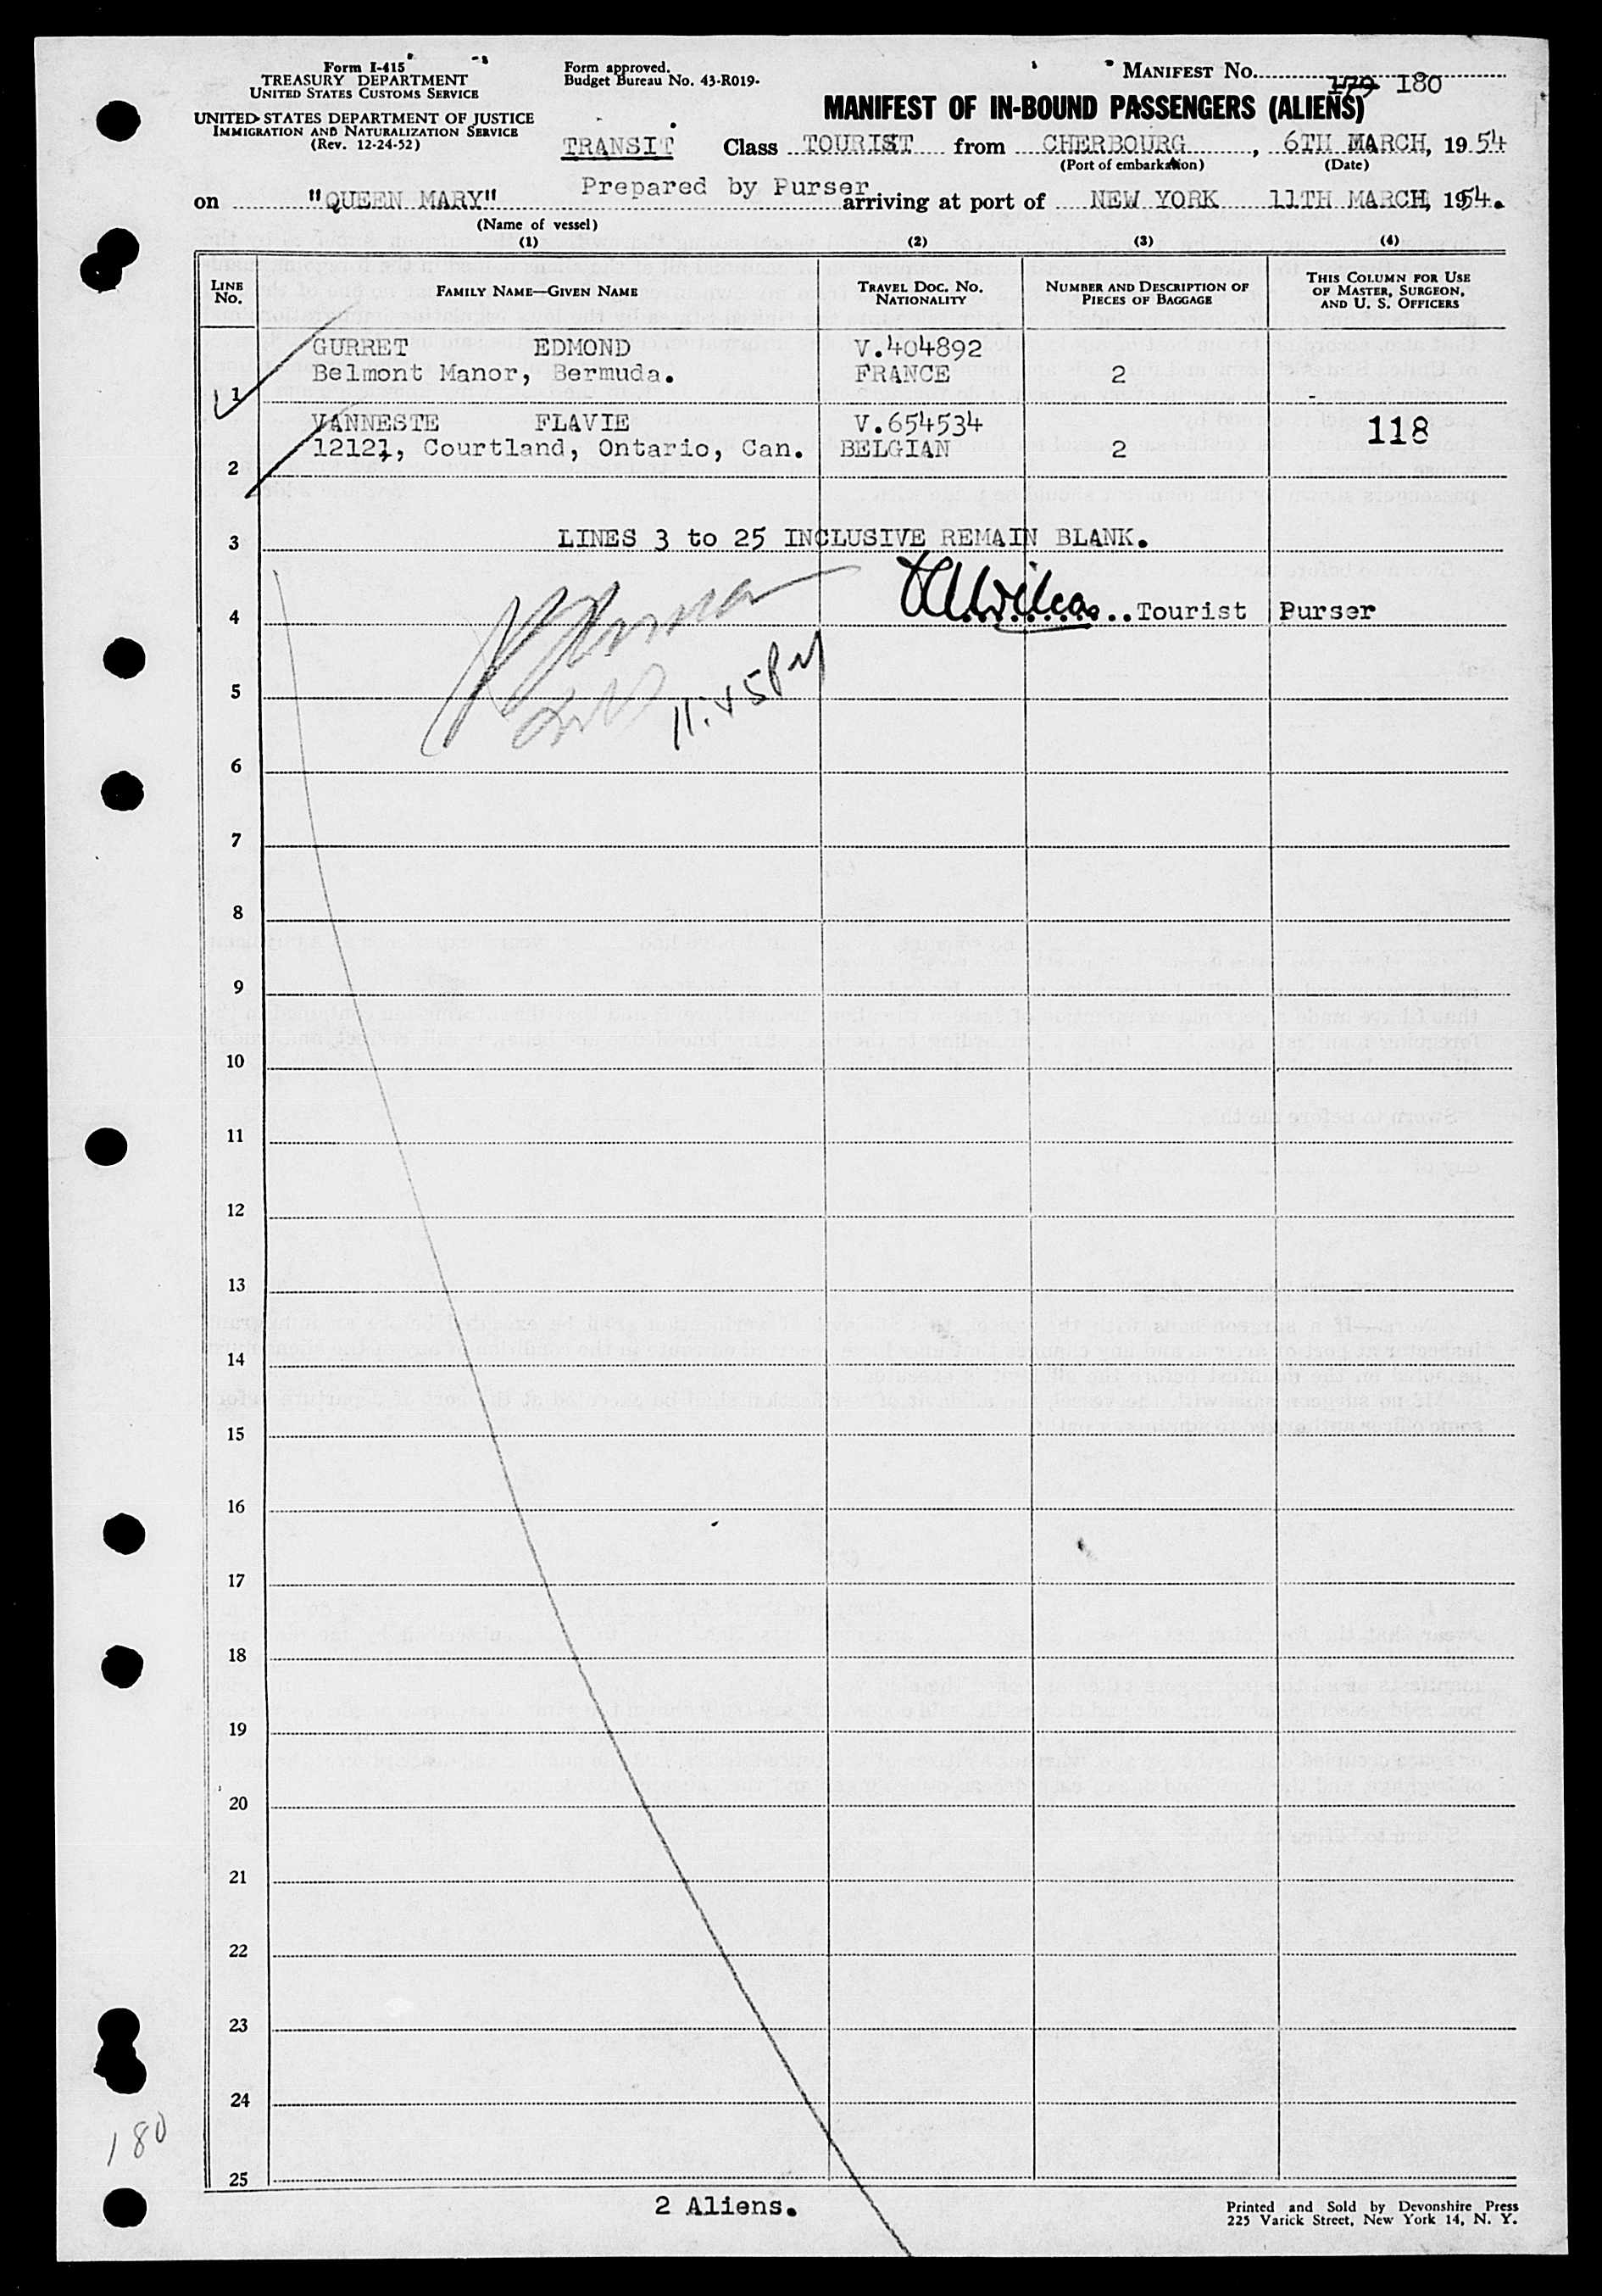 Form I-415
TREASURY DEPARTMENT
UNITED STATES CUSTOMS SERVICE
UNITED STATES DEPARTMENT OF JUSTICE
IMMIGRATION AND NATURALIZATION SERVICE
(Rev. 12-24-52)
Form approved.
Budget Bureau No. 43-R019.
MANIFEST No. 179 180
MANIFEST OF IN-BOUND PASSENGERS (ALIENS)
TRANSIT Class TOURIST from CHERBOURG, 6TH MARCH, 1954
(Port of embarkation) (Date)
Prepared by Purser
on "QUEEN MARY" arriving at port of NEW YORK 11TH MARCH, 1954.
(Name of vessel)
(1) (2) (3) (4)
LINE No. FAMILY NAME—GIVEN NAME TRAVEL DOC. No. NATIONALITY NUMBER AND DESCRIPTION OF PIECES OF BAGGAGE THIS COLUMN FOR USE OF MASTER, SURGEON, AND U. S. OFFICERS
GURRET EDMOND V.404892
1 Belmont Manor, Bermuda. FRANCE 2
VANNESTE FLAVIE V.654534 118
2 12121, Courtland, Ontario, Can. BELGIAN 2
3 LINES 3 to 25 INCLUSIVE REMAIN BLANK.
4 Tourist Purser
11:45PM
5
6
7
8
9
10
11
12
13
14
15
16
17
18
19
20
21
22
23
24
180
25
2 Aliens.
Printed and Sold by Devonshire Press
225 Varick Street, New York 14, N. Y.